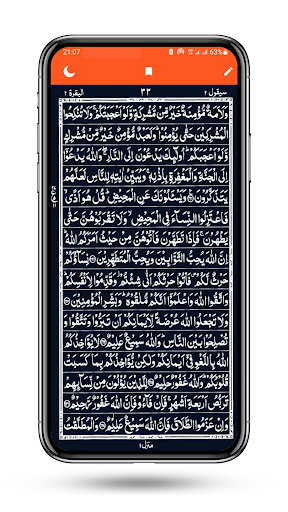 21:07
63%
سيقول ٢ ٣٣ البقرة ٢
وَلَاَمَةٌ مُّؤْمِنَةٌ خَيْرٌ مِّنْ مُّشْرِكَةٍ وَّلَوْ اَعْجَبَتْكُمْ ۚ وَلَا تُنْكِحُوا
الْمُشْرِكِيْنَ حَتّٰى يُؤْمِنُوْا ؕ وَلَعَبْدٌ مُّؤْمِنٌ خَيْرٌ مِّنْ مُّشْرِكٍ
وَّلَوْ اَعْجَبَكُمْ ؕ اُولٰٓئِكَ يَدْعُوْنَ اِلَى النَّارِ ۖ وَاللّٰهُ يَدْعُوْٓا
اِلَى الْجَنَّةِ وَالْمَغْفِرَةِ بِاِذْنِهٖ ۚ وَيُبَيِّنُ اٰيٰتِهٖ لِلنَّاسِ لَعَلَّهُمْ
يَتَذَكَّرُوْنَ ۝ وَيَسْئَلُوْنَكَ عَنِ الْمَحِيْضِ ؕ قُلْ هُوَ اَذًى ۙ
فَاعْتَزِلُوا النِّسَآءَ فِى الْمَحِيْضِ ۙ وَلَا تَقْرَبُوْهُنَّ حَتّٰى
يَطْهُرْنَ ۚ فَاِذَا تَطَهَّرْنَ فَاْتُوْهُنَّ مِنْ حَيْثُ اَمَرَكُمُ اللّٰهُ ؕ
اِنَّ اللّٰهَ يُحِبُّ التَّوَّابِيْنَ وَيُحِبُّ الْمُتَطَهِّرِيْنَ ۝ نِسَآؤُكُمْ
حَرْثٌ لَّكُمْ ۪ فَاْتُوْا حَرْثَكُمْ اَنّٰى شِئْتُمْ ۫ وَقَدِّمُوْا لِاَنْفُسِكُمْ ؕ
وَاتَّقُوا اللّٰهَ وَاعْلَمُوْٓا اَنَّكُمْ مُّلٰقُوْهُ ؕ وَبَشِّرِ الْمُؤْمِنِيْنَ ۝
وَلَا تَجْعَلُوا اللّٰهَ عُرْضَةً لِّاَيْمَانِكُمْ اَنْ تَبَرُّوْا وَتَتَّقُوْا وَ
تُصْلِحُوْا بَيْنَ النَّاسِ ؕ وَاللّٰهُ سَمِيْعٌ عَلِيْمٌ ۝ لَا يُؤَاخِذُكُمُ
اللّٰهُ بِاللَّغْوِ فِىْٓ اَيْمَانِكُمْ وَلٰكِنْ يُّؤَاخِذُكُمْ بِمَا كَسَبَتْ
قُلُوْبُكُمْ ؕ وَاللّٰهُ غَفُوْرٌ حَلِيْمٌ ۝ لِلَّذِيْنَ يُؤْلُوْنَ مِنْ نِّسَآئِهِمْ
تَرَبُّصُ اَرْبَعَةِ اَشْهُرٍ ۚ فَاِنْ فَآءُوْ فَاِنَّ اللّٰهَ غَفُوْرٌ رَّحِيْمٌ ۝
وَاِنْ عَزَمُوا الطَّلَاقَ فَاِنَّ اللّٰهَ سَمِيْعٌ عَلِيْمٌ ۝ وَالْمُطَلَّقٰتُ
منزل ١